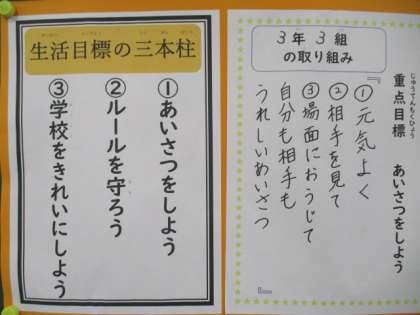 生活目標の三本柱
①あいさつをしよう
②ルールを守ろう
③学校をきれいにしよう
3年3組
の取り組み
重点目標 あいさつをしよう
じゅうてんもくひょう
『①元気よく
②相手を見て
③場面におうじて
自分も相手も
うれしいあいさつ
』